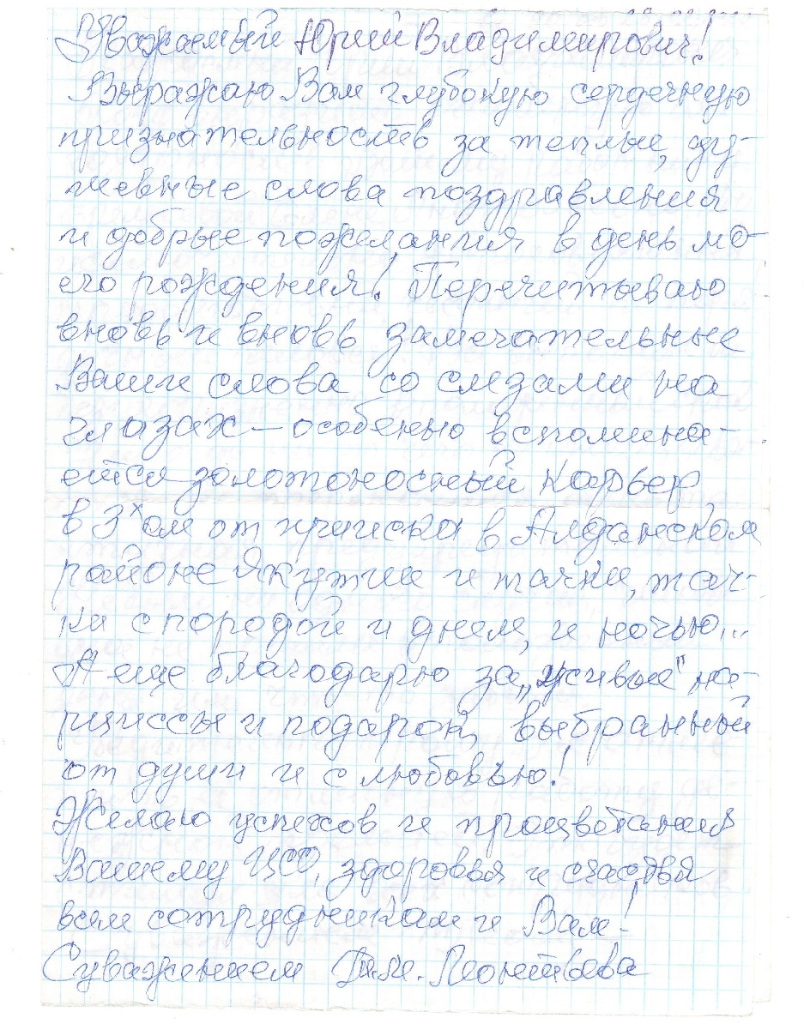 Уважаемый Юрий Владимирович!
Выражаю Вам глубокую сердечную
признательность за теплые, ду-
шевные слова поздравления
и добрые пожелания в день мо-
его рождения! Перечитываю
вновь и вновь замечательные
Ваши слова со слезами на
глазах – особенно вспомина-
ется золотоносный карьер,
в 3х от прииска в Алданском
районе Якутии и тачки, тач-
ки с породой и днем, и ночью...
А еще благодарю за „живые" на-
рциссы и подарок, выбранный
от души и с любовью!
Желаю успехов и процветания
Вашему ЦСО, здоровья и счастья
всем сотрудникам и Вам!
С уважением Леонтьева